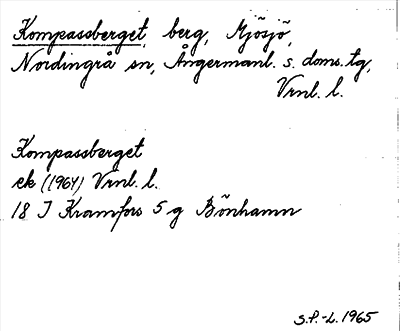 Kompassberget, berg, Mjösjö,
Nordingrå sn, Ångermanl. s. doms. tg,
Vrnl. l.
Kompassberget
ek (1964) Vrnl. l.
18 I Kramfors 5 g Bönhamn
S.P.-L. 1965